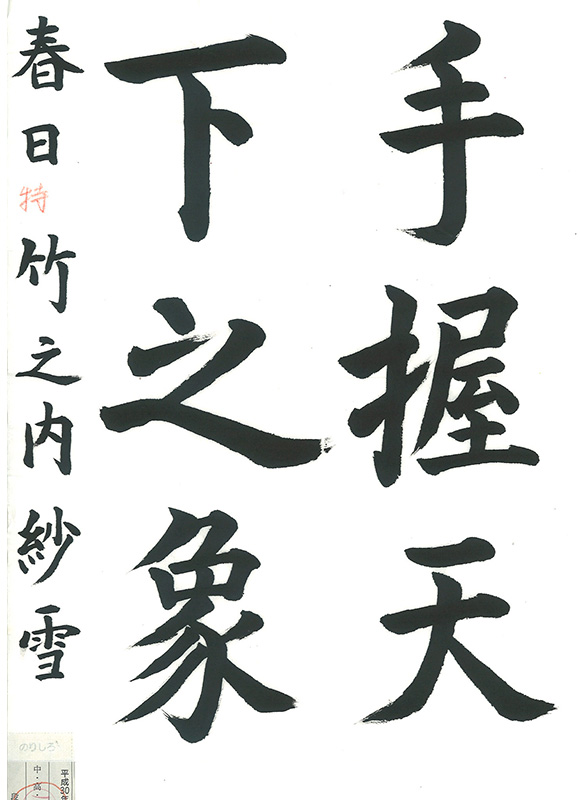 手握天
下之象
春日特竹之内紗雪
のりしろ
平成30年
中・高・
段